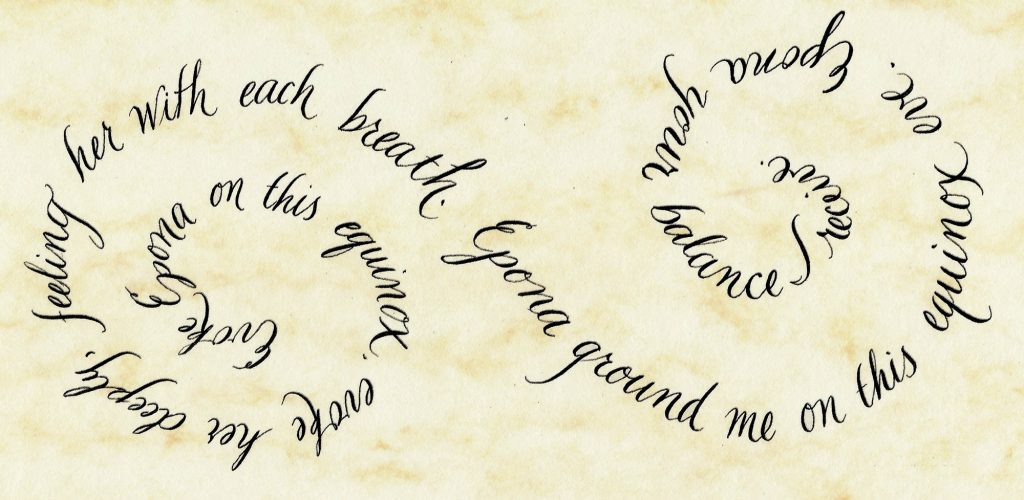 Evoke Epona on this equinox. evoke her deeply. feeling her with each breath. Epona ground me on this equinox eve. Epona your balance I receive.